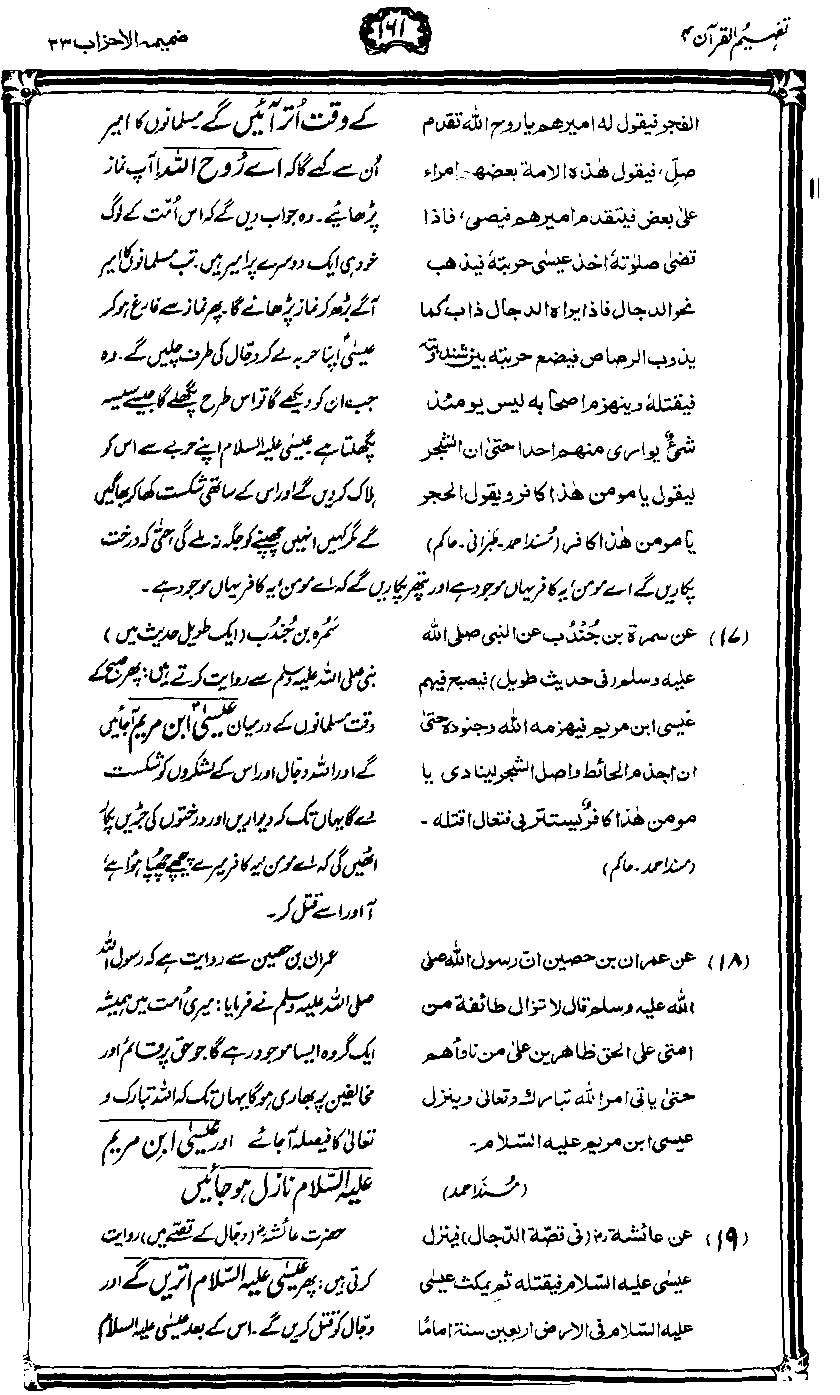 تفہیم القرآن ۴
۱۶۱
ضمیمہ الاحزاب ۳۳
الفجر فیقول له امیرهم یا روح الله تقدم
صلّ، فیقول هٰذه الامة بعضهم امراء
علیٰ بعض فیتقدم امیرهم فیصلی، فاذا
قضیٰ صلوٰتهٗ اخذ عیسیٰ حربتهٗ فیذهب
نحو الدجال فاذا یراه الدجال ذاب کما
یذوب الرصاص فیضع حربته بین شندوته
فیقتلهٗ وینهزم اصحابه لیس یومئذ
شیٌٔ یواری منهم احدا حتیٰ ان الشجر
لیقول یا مومن هٰذا کافر ویقول الحجر
یا مومن هٰذا کافر (مُسند احمد۔ طبرانی۔ حاکم)
کے وقت اُتر آئیں گے مسلمانوں کا امیر
اُن سے کہے گا کہ اے رُوح اللہ! آپ نماز
پڑھایئے۔ وہ جواب دیں گے کہ اس اُمّت کے لوگ
خود ہی ایک دوسرے پر امیر ہیں۔ تب مسلمانوں کا امیر
آگے بڑھ کر نماز پڑھائے گا۔ پھر نماز سے فارغ ہو کر
عیسیٰؑ اپنا حربہ لے کر دجّال کی طرف چلیں گے۔ وہ
جب ان کو دیکھے گا تو اس طرح پگھلے گا جیسے سیسہ
پگھلتا ہے عیسیٰ علیہ السلام اپنے حربے سے اس کو
ہلاک کردیں گے اور اس کے ساتھی شکست کھا کر بھاگیں
گے مگر کہیں انہیں چھپنے کو جگہ نہ ملے گی حتّیٰ کہ درخت
پکاریں گے اے مومن! یہ کافر یہاں موجود ہے اور پتھر پکاریں گے کہ اے مومن! یہ کافر یہاں موجود ہے۔
(۱۷) عن سمرة بن جُنْدُب عن النبی صلی الله
علیه وسلم (فی حدیث طویل) فیصبح فیهم
عیسی ابن مریم فیهزمه الله وجنوده حتیٰ
ان اجذم الحائط واصل الشجر لینادی یا
مومن هٰذا کافرٌ یستتر بی فتعال اقتله۔
(مسند احمد۔ حاکم)
سَمُرہ بن جُنْدُب (ایک طویل حدیث میں)
نبی صلی اللہ علیہ وسلم سے روایت کرتے ہیں: پھر صبح کے
وقت مسلمانوں کے درمیان عیسیٰؑ ابن مریم آجائیں
گے اور اللہ دجّال اور اس کے لشکروں کو شکست
دے گا یہاں تک کہ دیواریں اور درختوں کی جڑیں پکار
اٹھیں گی کہ اے مومن! یہ کافر میرے پیچھے چھپا ہوا ہے،
آ اور اسے قتل کر۔
(۱۸) عن عمران بن حصین انّ رسول الله صلی
الله علیه وسلم قال لا تزال طائفة من
امتی علی الحق ظاهرین علیٰ من ناوأهم
حتیٰ یاتی امر الله تبارك وتعالیٰ وینزل
عیسی ابن مریم علیه السّلام۔
(مُسند احمد)
عمران بن حصین سے روایت ہے کہ رسول اللہ
صلی اللہ علیہ وسلم نے فرمایا: میری اُمت میں ہمیشہ
ایک گروہ ایسا موجود رہے گا جو حق پر قائم اور
مخالفین پر بھاری ہوگا یہاں تک کہ اللہ تبارک و
تعالیٰ کا فیصلہ آجائے اور عیسیٰ ابن مریم
علیہ السّلام نازل ہو جائیں
(۱۹) عن عائشة رضـ (فی قصّة الدّجال) فینزل
عیسیٰ علیه السّلام فیقتله ثم یمکث عیسیٰ
علیه السّلام فی الارض اربعین سنة اماما
حضرت عائشہ رضـ (دجّال کے قصّے میں) روایت
کرتی ہیں: پھر عیسیٰ علیہ السّلام اتریں گے اور
دجّال کو قتل کریں گے۔ اس کے بعد عیسیٰ علیہ السّلام